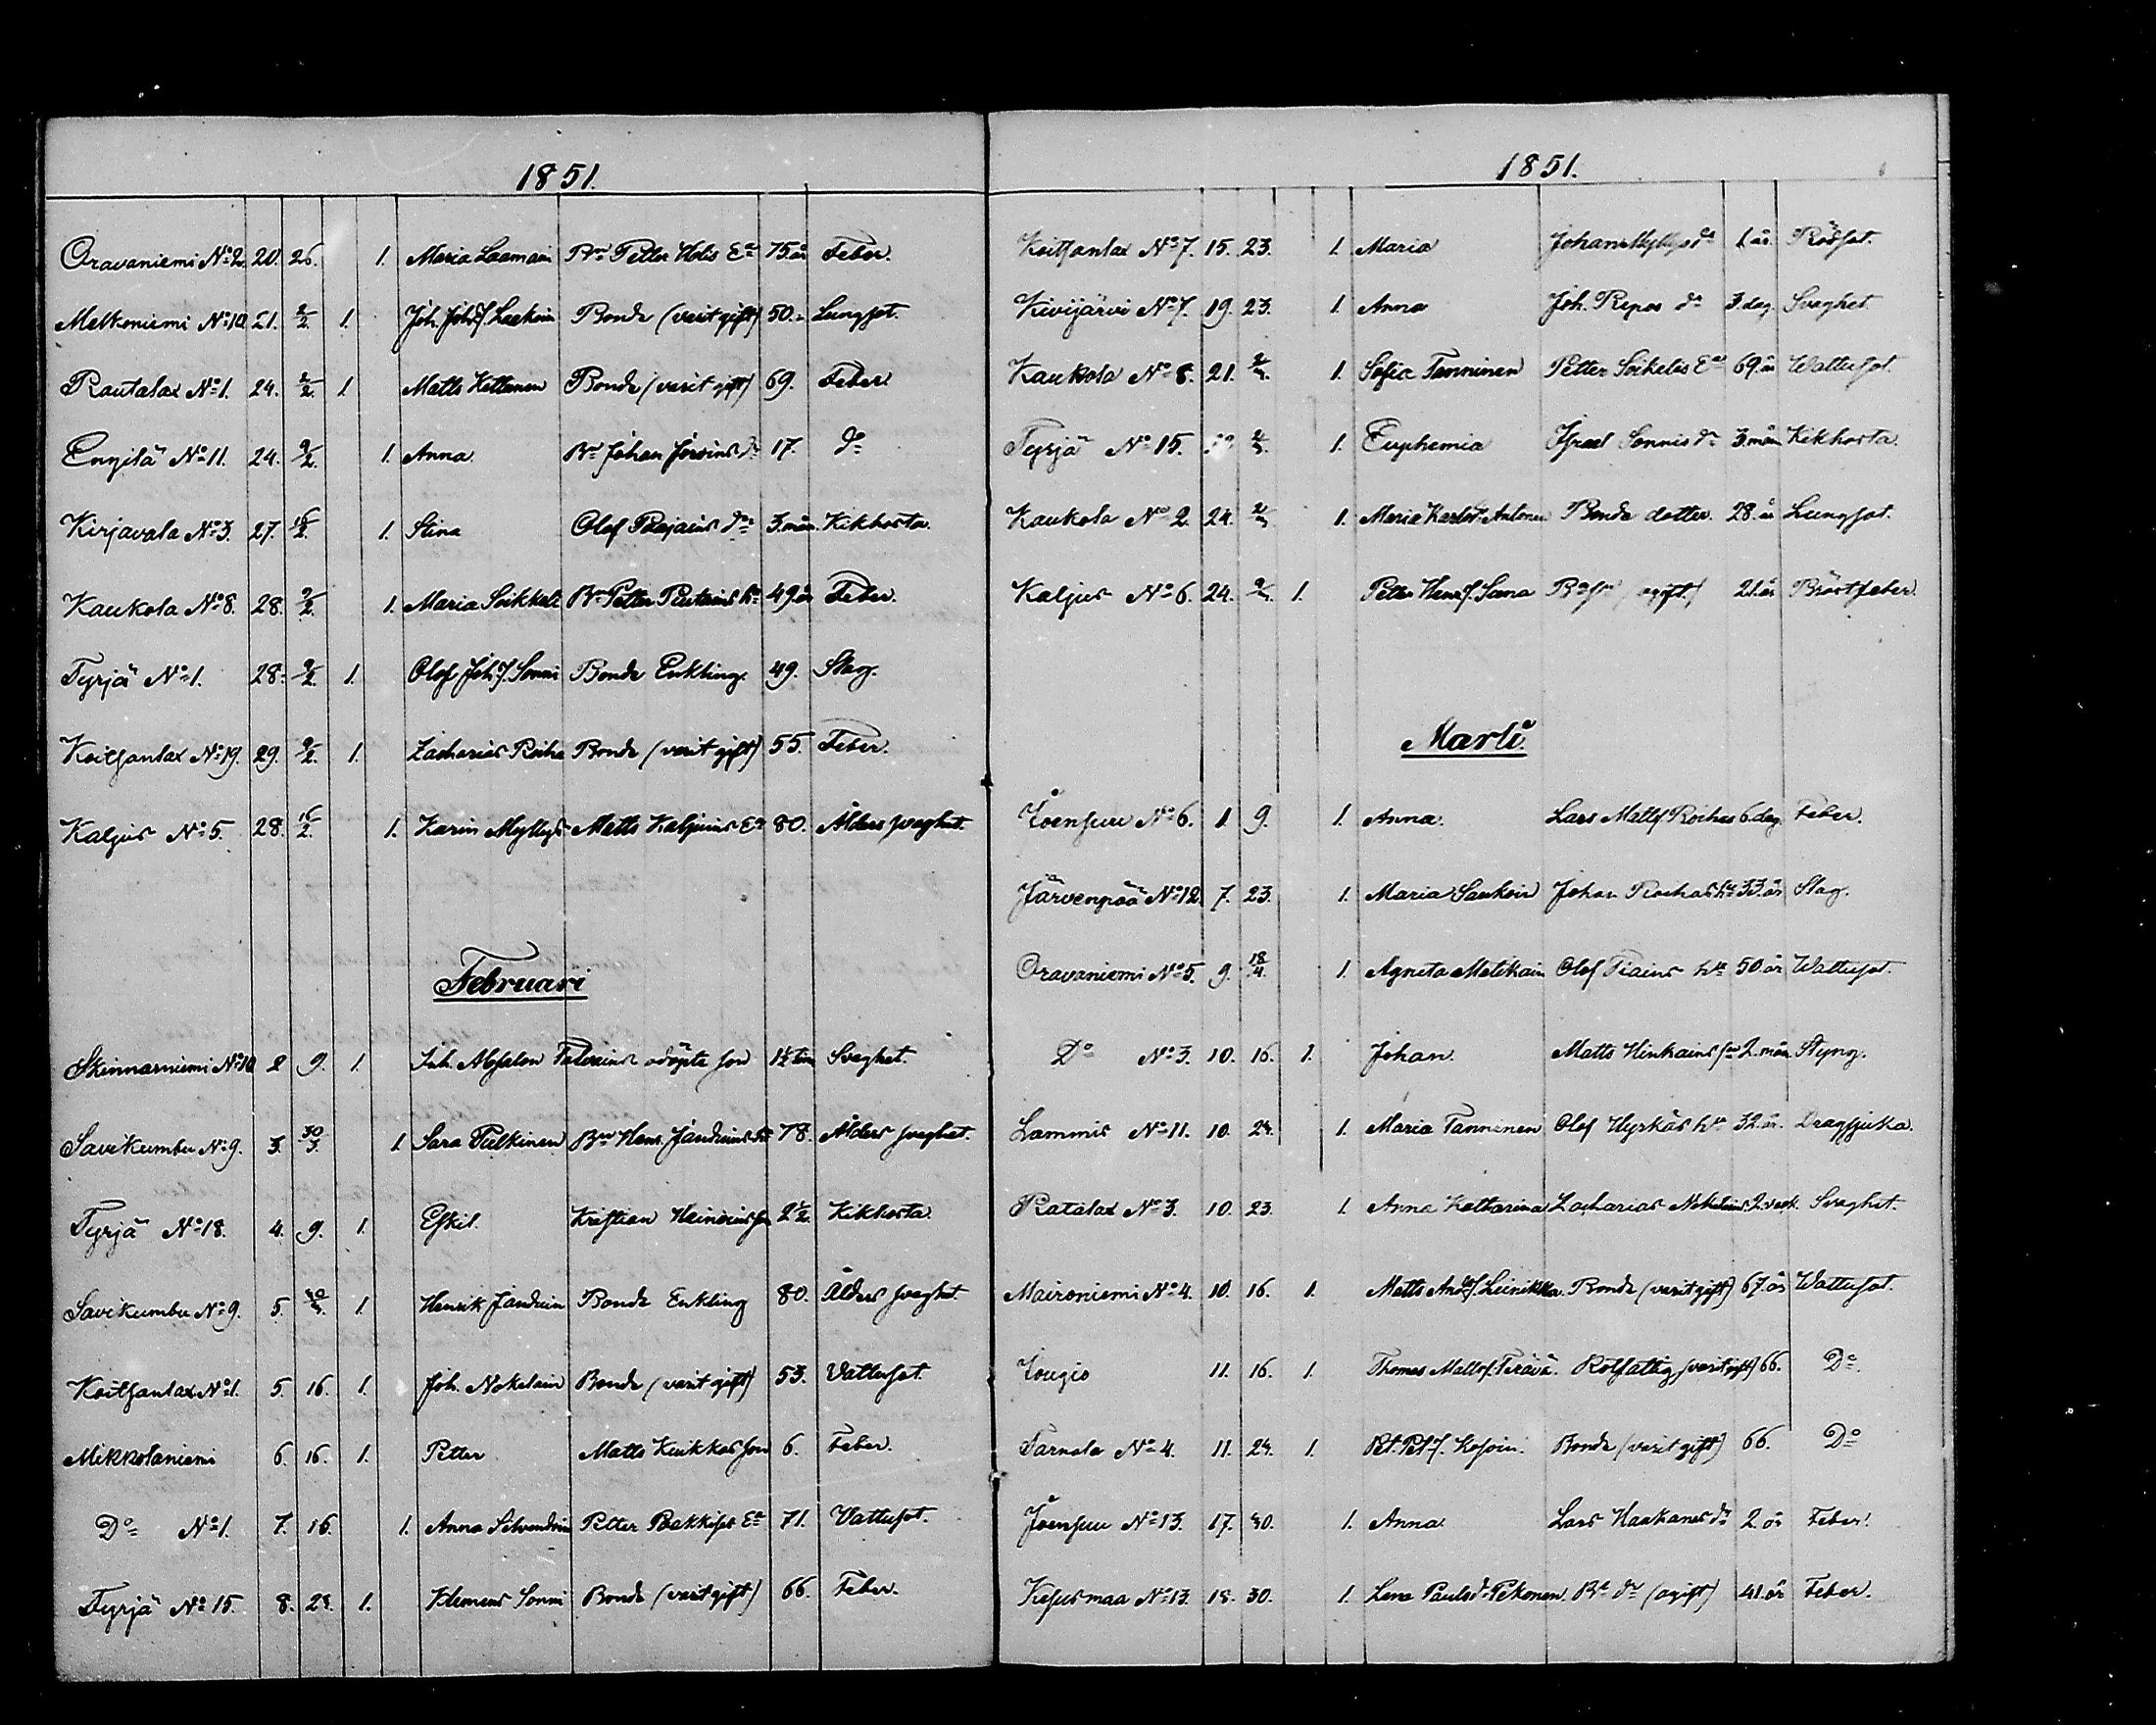 1851.
Oravaniemi No 2. 20. 26. 1. Maria Laamain Bn Petter Holis Ea 75. år Feber.
Melkoniemi No 10 21. 2/2. 1. Joh. Johs. f. Laakoin Bonde (varit gift) 50. " Lungsot.
Rautalax No 1. 24. 2/2. 1. Matts Kettunen Bonde (varit gift) 69. Feber
Engilä No 11. 24. 9/2. 1. Anna. Bn Johan dr 17. do
Kirjavala No 3. 27. 16/2. 1. Stina Olof dr 3. mån. Kikhosta.
Kaukola No 8. 28. 9/2. 1. Maria Soikkeli Bn Petter hu 49 år Feber.
Tyrjä No 1. 28. 9/2. 1. Olof Joh. f. Sonni Bonde Enkling. 49. Slag.
Koitsanlax No 19. 29. 9/2. 1. Zacharias Roiha Bonde (varit gift) 55. Feber.
Kaljus No 5. 28. 16/2. 1. Karin Myllys Matts Kaljuins Ea 80. Ålders svaghet.
Februari
Skinnarniemi No 10 2 9. 1. Inh. Absalon odöpta son 1½ tim Svaghet.
Savikumbu No 9. 3. 30/3. 1. Sara Tulkinen Bn Hans Janduins 78. Ålders svaghet.
Tyrjä No 18. 4. 9. 1. Eskil. Kristian Heinoins son 2½. Kikhosta.
Savikumbu No 9. 5. 30/3. 1. Henrik Janduin Bonde Enkling 80. Ålders svaghet.
Koitsanlax No 1. 5. 16. 1. Joh. Nokelain Bonde (varit gift) 53. Vattusot.
Mikkolaniemi 6. 16. 1. Petter Matts Kuikkas son 6. Feber.
Do No 1. 7. 16. 1. Anna Silvendoin Petter Pakkises Ea 71. Vattusot.
Tyrjä No 15. 8. 23. 1. Klemens Sonni Bonde (varit gift) 66. Feber.
1851.
Koitsanlax No 7. 15. 23. 1. Maria Johan Myllys dr 1 år. Rödsot.
Kivijärvi No 7. 19. 23. 1. Anna Joh. Repos dr 3. dag. Svaghet.
Kaukola No 8. 21. 2/3. 1. Sofia Tanninen Petter Soikelis Ea 69. år Wattusot.
Tyrjä No 15. 2/3. 1. Euphemia Israel Sonnis dr 3. mån Kikhosta.
Kaukola No 2. 24. 2/3. 1. Maria Karlsdr Antonen Bonde dotter. 28. år Lungsot.
Kaljus No 6. 24. 2/3. 1. Petter Henr. f. Sana Bn son (ogift) 21. år Bröstfeber.
Martii
Joensuu No 6. 1. 9. 1. Anna. Lars Matts Roihas 6. dag. Feber.
Järvenpää No 12. 7. 23. 1. Maria Saukoin Johan Roihas hu 33. år Slag.
Oravaniemi No 5. 9. 18/4. 1. Agneta Matikain Olof Tiains hu 50. år Wattusot.
Do No 3. 10. 16. 1. Johan. Matts Hinkains son 2. mån. Styng.
Lammis No 11. 10. 24. 1. Maria Tanninen Olof Hyrkäs hu 32. år. Dragsjuka.
Ratalax No 3. 10. 23. 1. Anna Katharina Zacharias Nokelains 2. veck. Svaghet.
Maironiemi No 4. 10. 16. 1. Matts And. f. Leinikka. Bonde (varit gift) 67. år Wattusot.
Jougio 11. 16. 1. Thomas Matts f. Terävä. Rotfattig (varit gift) 66. Do
Tarnala No 4. 11. 24. 1. Pet. Pet. f. Kosoin. Bonde (varit gift) 66. Do
Joensuu No 13. 17. 30. 1. Anna Lars Haakanas dr 2. år Feber.
Kesusmaa No 13. 18. 30. 1. Lena Paulsdr Pekonen. Bd dr (ogift) 41. år Feber.